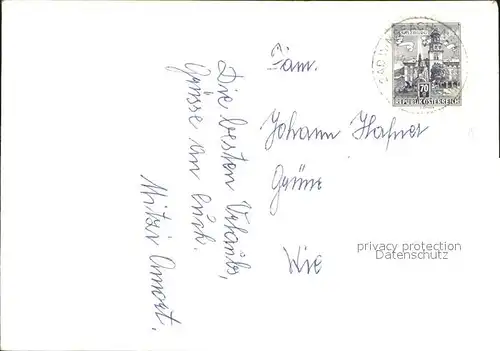 Die besten Urlaubs,
Grüsse an Euch.
Mitzi
Fam.
Johann Hafner
Wie
70
REPUBLIK ÖSTERREICH
privacy protection
Datenschutz